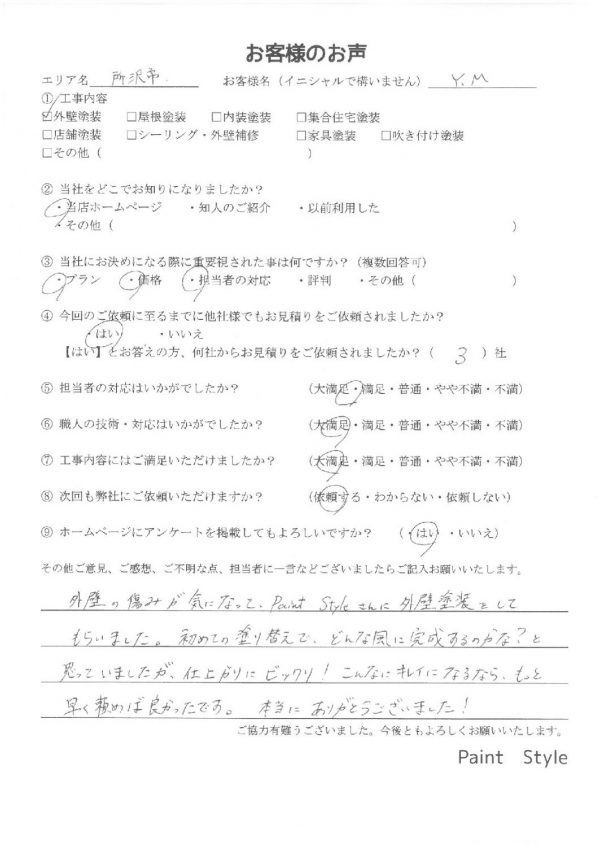 お客様のお声
エリア名 所沢市 お客様名（イニシャルで構いません） Y.M
① 工事内容
☑外壁塗装 □屋根塗装 □内装塗装 □集合住宅塗装
□店舗塗装 □シーリング・外壁補修 □家具塗装 □吹き付け塗装
□その他（ ）
② 当社をどこでお知りになりましたか？
・当店ホームページ ・知人のご紹介 ・以前利用した
・その他（ ）
③ 当社にお決めになる際に重要視された事は何ですか？（複数回答可）
・プラン ・価格 ・担当者の対応 ・評判 ・その他（ ）
④ 今回のご依頼に至るまでに他社様でもお見積りをご依頼されましたか？
・はい ・いいえ
【はい】とお答えの方、何社からお見積りをご依頼されましたか？（ 3 ）社
⑤ 担当者の対応はいかがでしたか？ （大満足・満足・普通・やや不満・不満）
⑥ 職人の技術・対応はいかがでしたか？ （大満足・満足・普通・やや不満・不満）
⑦ 工事内容にはご満足いただけましたか？ （大満足・満足・普通・やや不満・不満）
⑧ 次回も弊社にご依頼いただけますか？ （依頼する・わからない・依頼しない）
⑨ ホームページにアンケートを掲載してもよろしいですか？ （・はい ・いいえ）
その他ご意見、ご感想、ご不明な点、担当者に一言などございましたらご記入お願いいたします。
外壁の傷みが気になって、Paint Styleさんに外壁塗装をして
もらいました。初めての塗り替えで、どんな風に完成するのかな？と
思っていましたが、仕上がりにビックリ！こんなにキレイになるなら、もっと
早く頼めば良かったです。本当にありがとうございました！
ご協力有難うございました。今後ともよろしくお願いいたします。
Paint Style